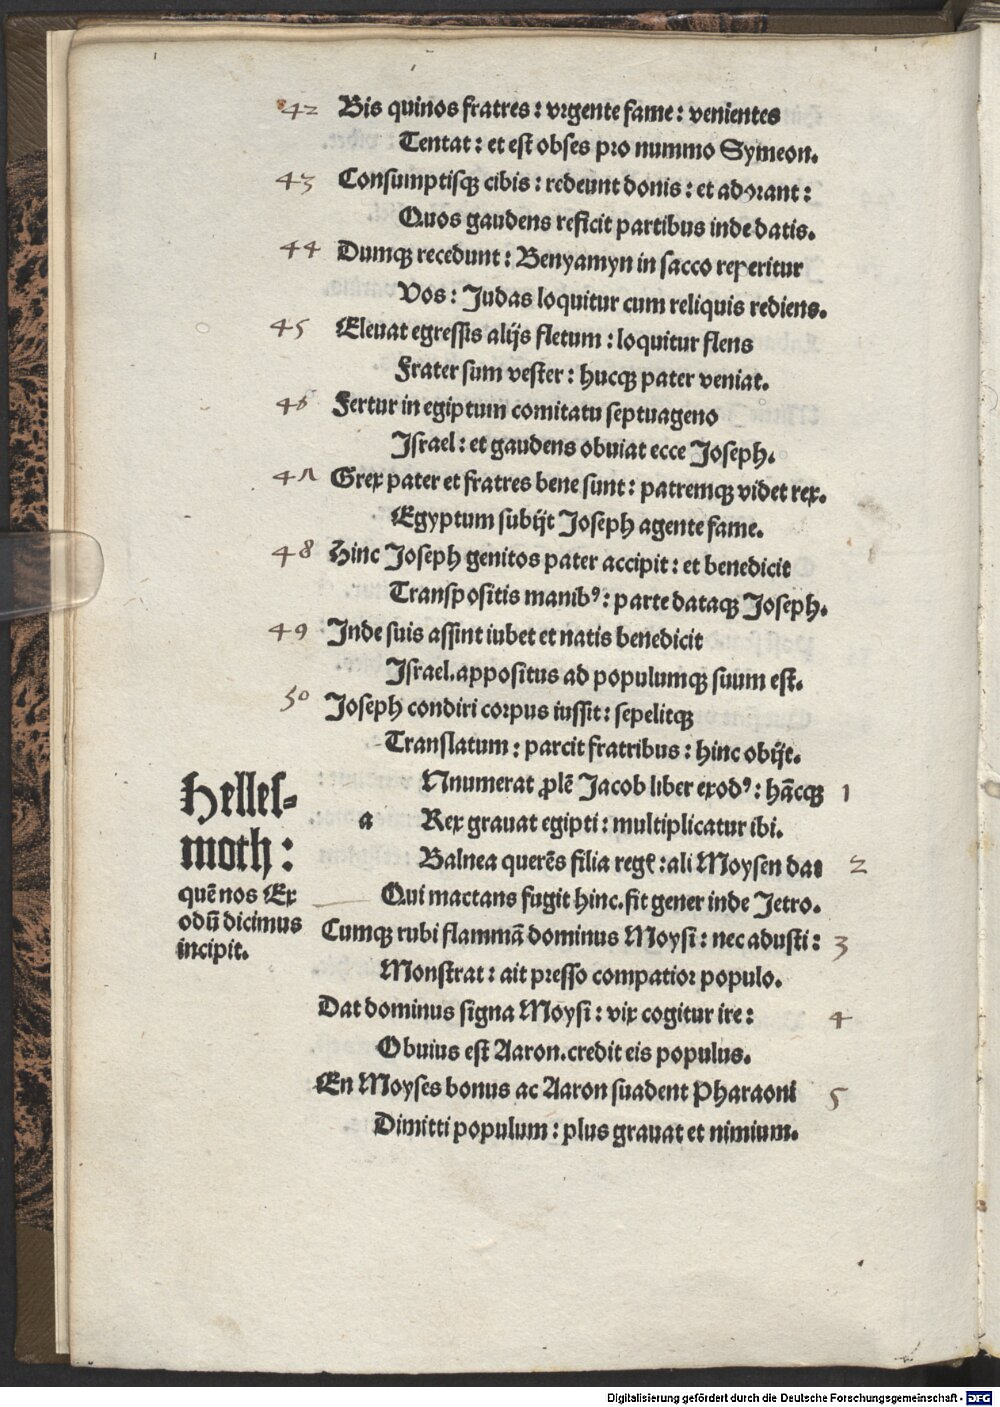 42 Bis quinos fratres : vrgente fame : venientes
Tentat : et est obses pro nummo Symeon.
43 Consumptisqꝫ cibis : redeunt donis : et adorant :
Quos gaudens reficit partibus inde datis.
44 Dumqꝫ recedunt : Benyamyn in sacco reperitur
Vos : Judas loquitur cum reliquis rediens.
45 Eleuat egressis alijs fletum : loquitur flens
Frater sum vester : hucqꝫ pater veniat.
46 Fertur in egiptum comitatu septuageno
Israel : et gaudens obuiat ecce Joseph.
47 Grex pater et fratres bene sunt : patremqꝫ videt rex.
Egyptum subijt Joseph agente fame.
48 Hinc Joseph genitos pater accipit : et benedicit
Transpositis manibꝰ : parte dataqꝫ Joseph.
49 Inde suis assint iubet et natis benedicit
Israel. appositus ad populumqꝫ suum est.
50 Joseph condiri corpus iussit : sepelitqꝫ
Translatum : parcit fratribus : hinc obijt.
Hellesmoth :
quē nos Exodū dicimus
incipit.
a
Nnumerat ꝓlē Jacob liber exodꝰ : hācqꝫ 1
Rex grauat egipti : multiplicatur ibi.
Balnea querēs filia regꝭ : ali Moysen dat 2
Qui mactans fugit hinc. fit gener inde Jetro.
Cumqꝫ rubi flammā dominus Moysi : nec adusti : 3
Monstrat : ait presso compatior populo.
Dat dominus signa Moysi : vix cogitur ire : 4
Obuius est Aaron. credit eis populus.
En Moyses bonus ac Aaron suadent Pharaoni 5
Dimitti populum : plus grauat et nimium.
Digitalisierung gefördert durch die Deutsche Forschungsgemeinschaft - DFG